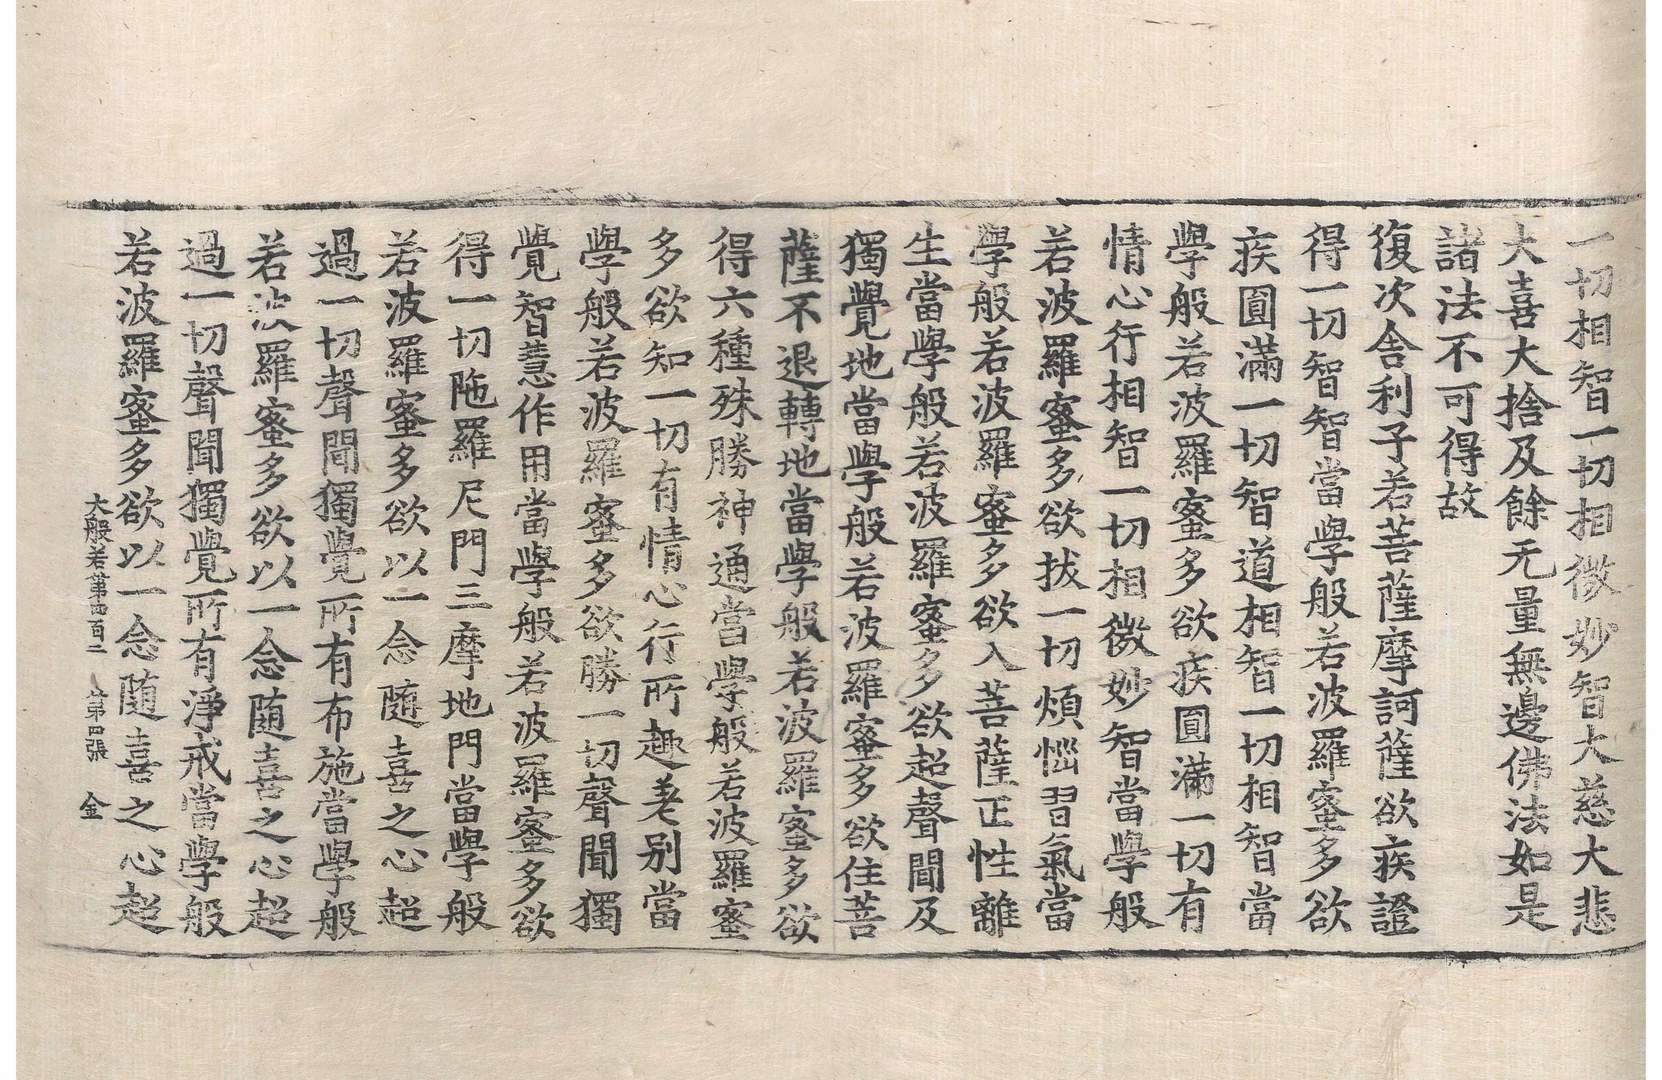 一切相智一切相微妙智大慈大悲
大喜大捨及餘无量無邊佛法如是
諸法不可得故
復次舍利子若菩薩摩訶薩欲疾證
得一切智智當學般若波羅蜜多欲
疾圓滿一切智道相智一切相智當
學般若波羅蜜多欲疾圓滿一切有
情心行相智一切相微妙智當學般
若波羅蜜多欲拔一切煩惱習氣當
學般若波羅蜜多欲入菩薩正性離
生當學般若波羅蜜多欲超聲聞及
獨覺地當學般若波羅蜜多欲住菩
薩不退轉地當學般若波羅蜜多欲
得六種殊勝神通當學般若波羅蜜
多欲知一切有情心行所趣差別當
學般若波羅蜜多欲勝一切聲聞獨
覺智慧作用當學般若波羅蜜多欲
得一切陁羅尼門三摩地門當學般
若波羅蜜多欲以一念隨喜之心超
過一切聲聞獨覺所有布施當學般
若波羅蜜多欲以一念隨喜之心超
過一切聲聞獨覺所有淨戒當學般
若波羅蜜多欲以一念隨喜之心超
大般若第四百二 第四張 金